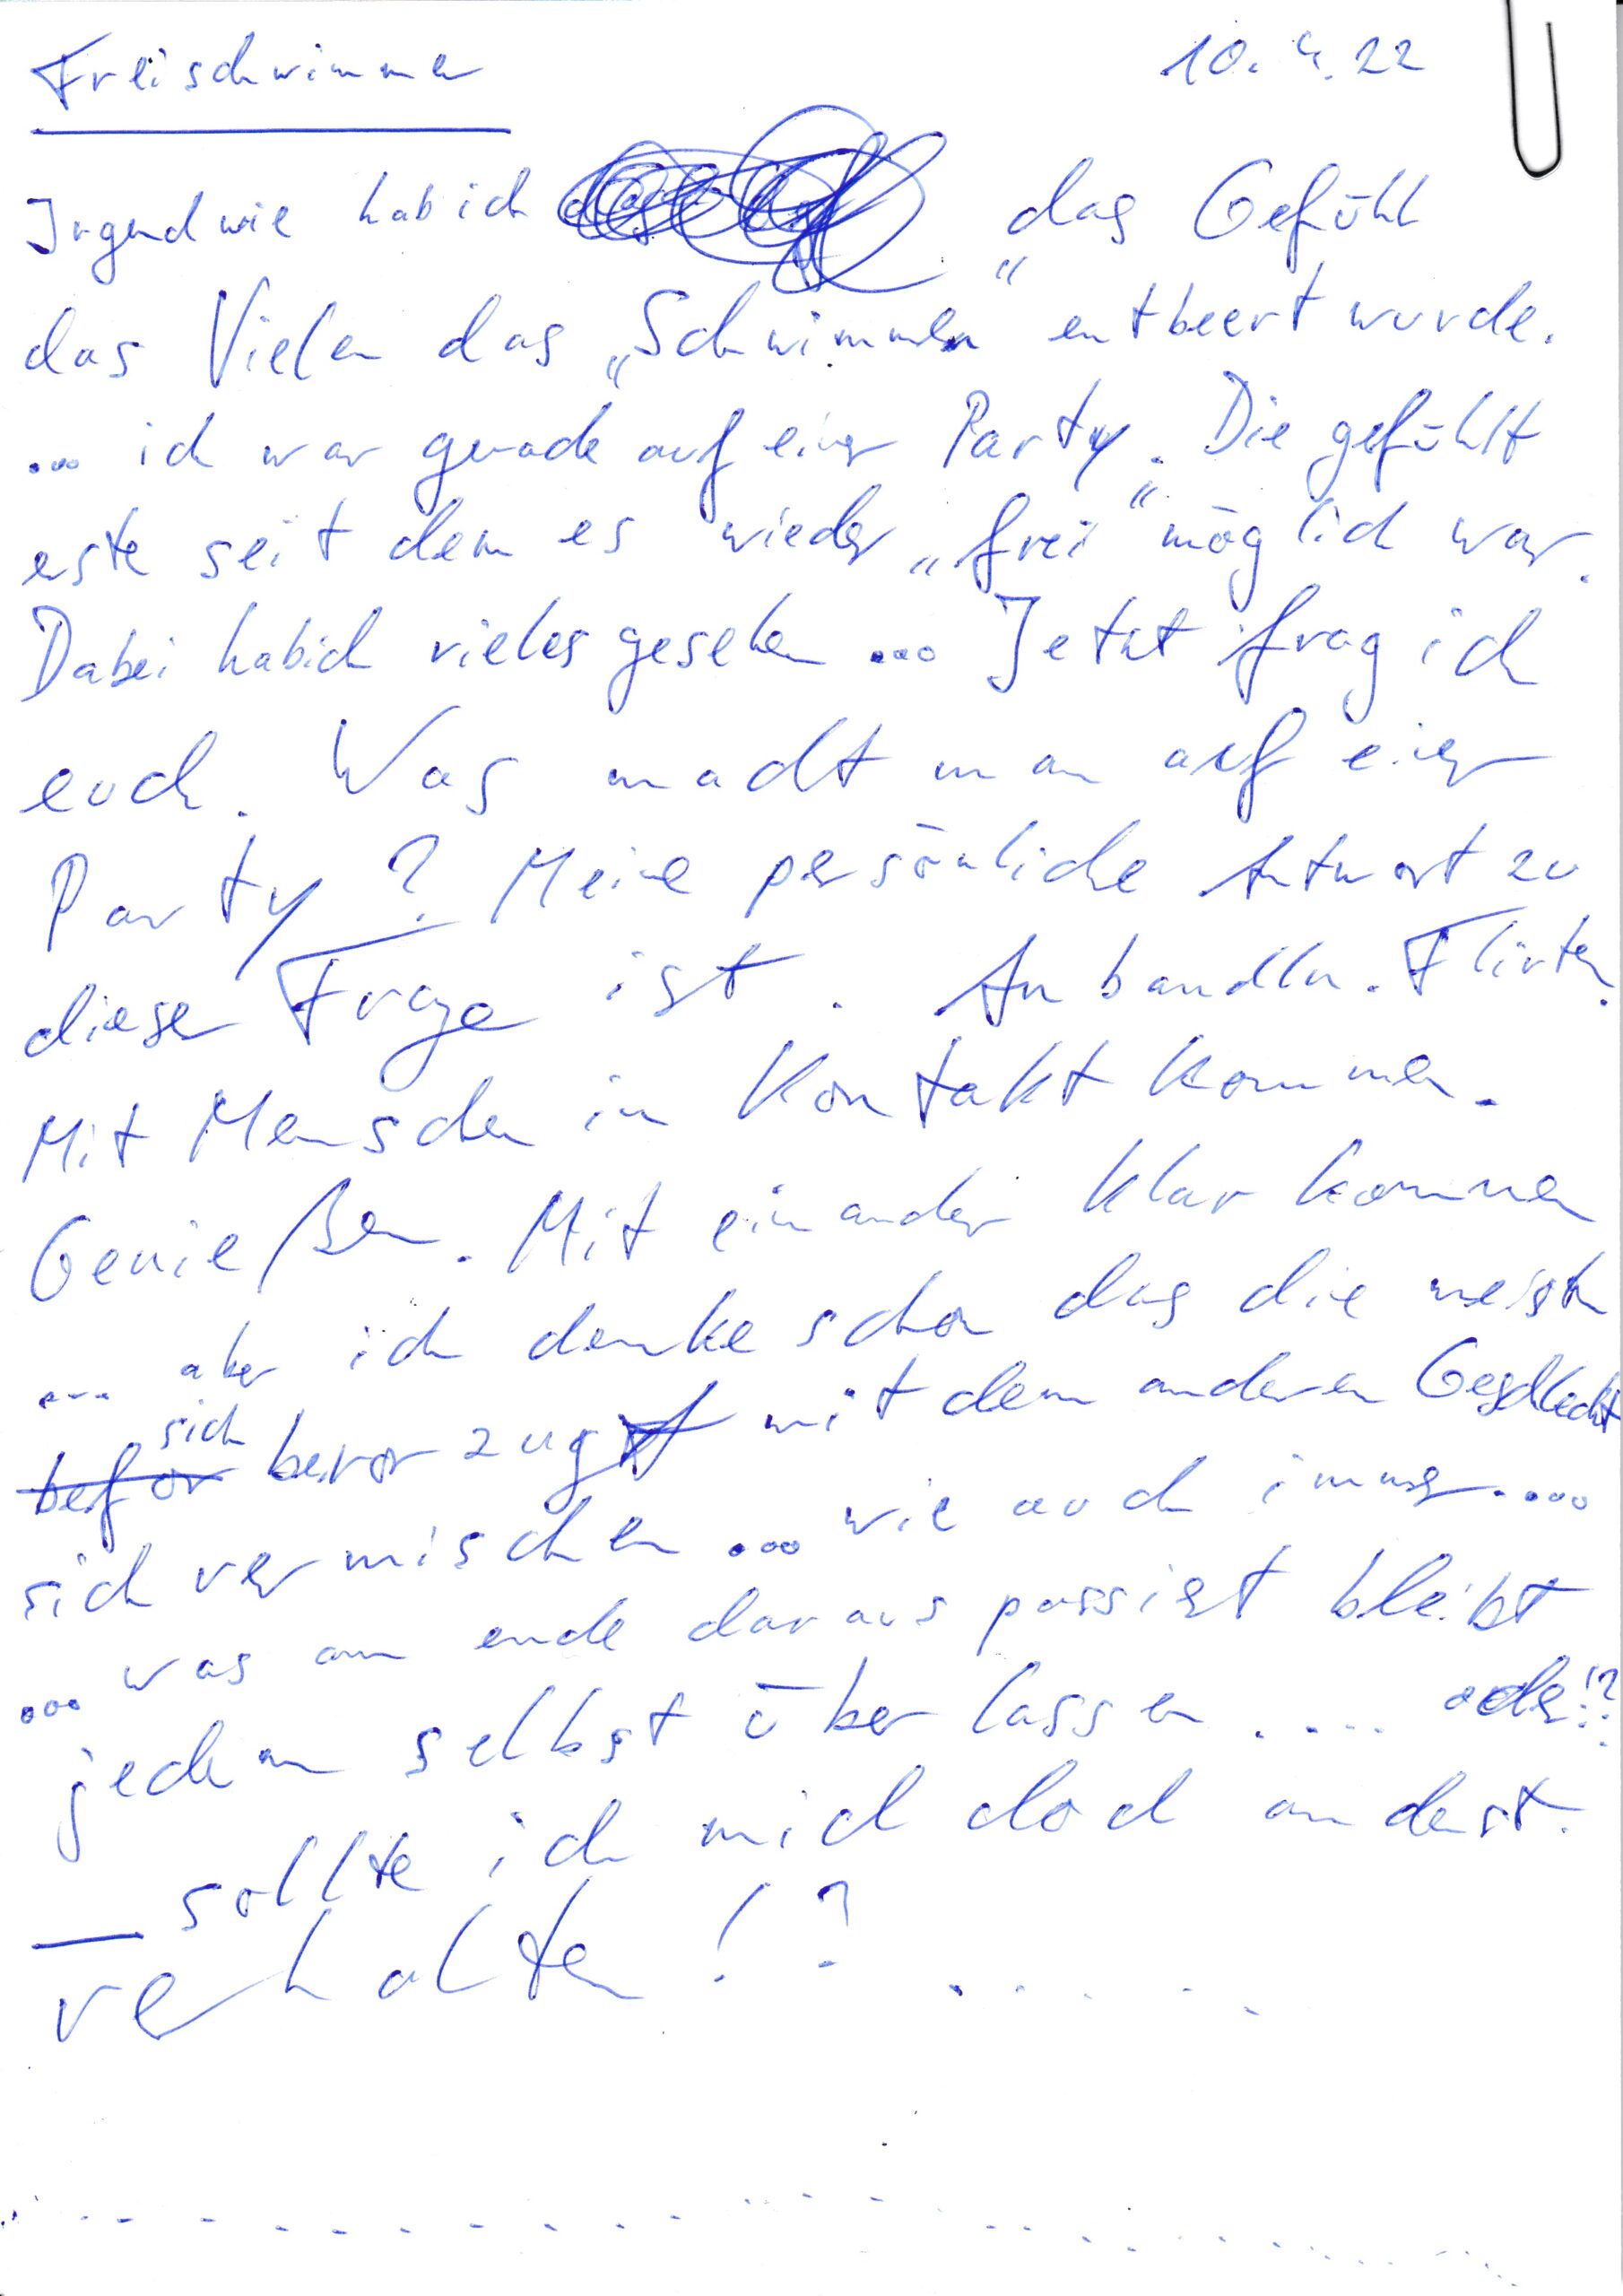 Freischwimmer 10.4.22
Irgendwie hab ich das Gefühl
das Vielen das „Schwimmen“ entbeert wurde.
... ich war gerade auf einer Party. Die gefühlt
erste seit dem es wieder „frei“ möglich war.
Dabei habich vieles gesehen ... Jetzt frag ich
euch. Was macht man auf einer
Party? Meine persönliche Antwort zu
dieser Frage ist. Anbandln. Flirten.
Mit Menschen in Kontakt kommen.
Genießen. Mit einander klar kommen
... aber ich denke schon das die meisten
befor sich bevorzugt mit dem anderen Geschlecht
sich vermischen ... wie auch immer....
... was am ende daraus passiert bleibt
jedem selbst überlassen .... oder!?
_ sollte ich mich doch anderst.
verhalten!? .....